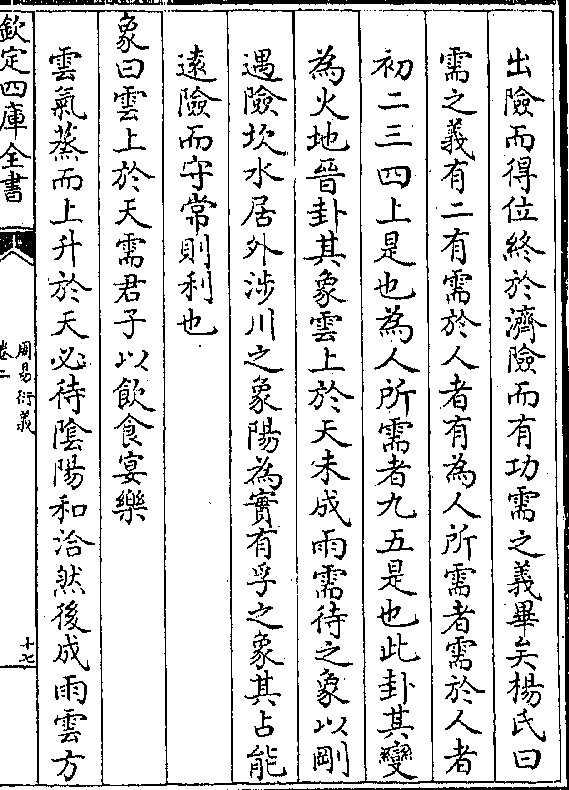 出險而得位終於濟險而有功需之義畢矣楊氏曰
需之義有二有需於人者有為人所需者需於人者
初二三四上是也為人所需者九五是也此卦其變
為火地晉卦其象雲上於天未成雨需待之象以剛
遇險坎水居外涉川之象陽為實有孚之象其占能
遠險而守常則利也
象曰雲上於天需君子以飲食宴樂
雲氣蒸而上升於天必待陰陽和洽然後成雨雲方
欽定四庫全書
周易衍義
卷二
十七